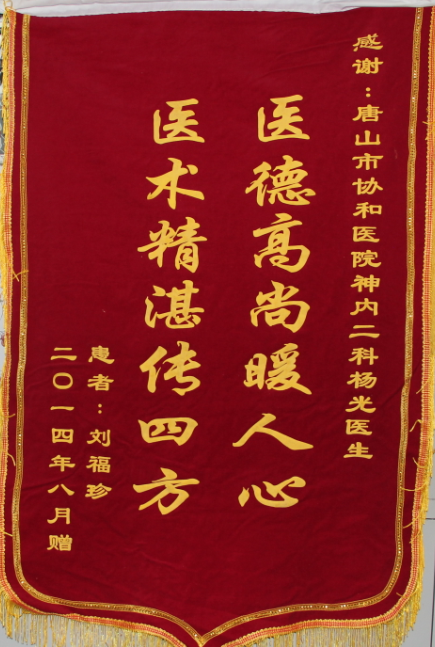 感谢：唐山市协和医院神内二科杨光医生
医德高尚暖人心
医术精湛传四方
患者：刘福珍
二〇一四年八月赠